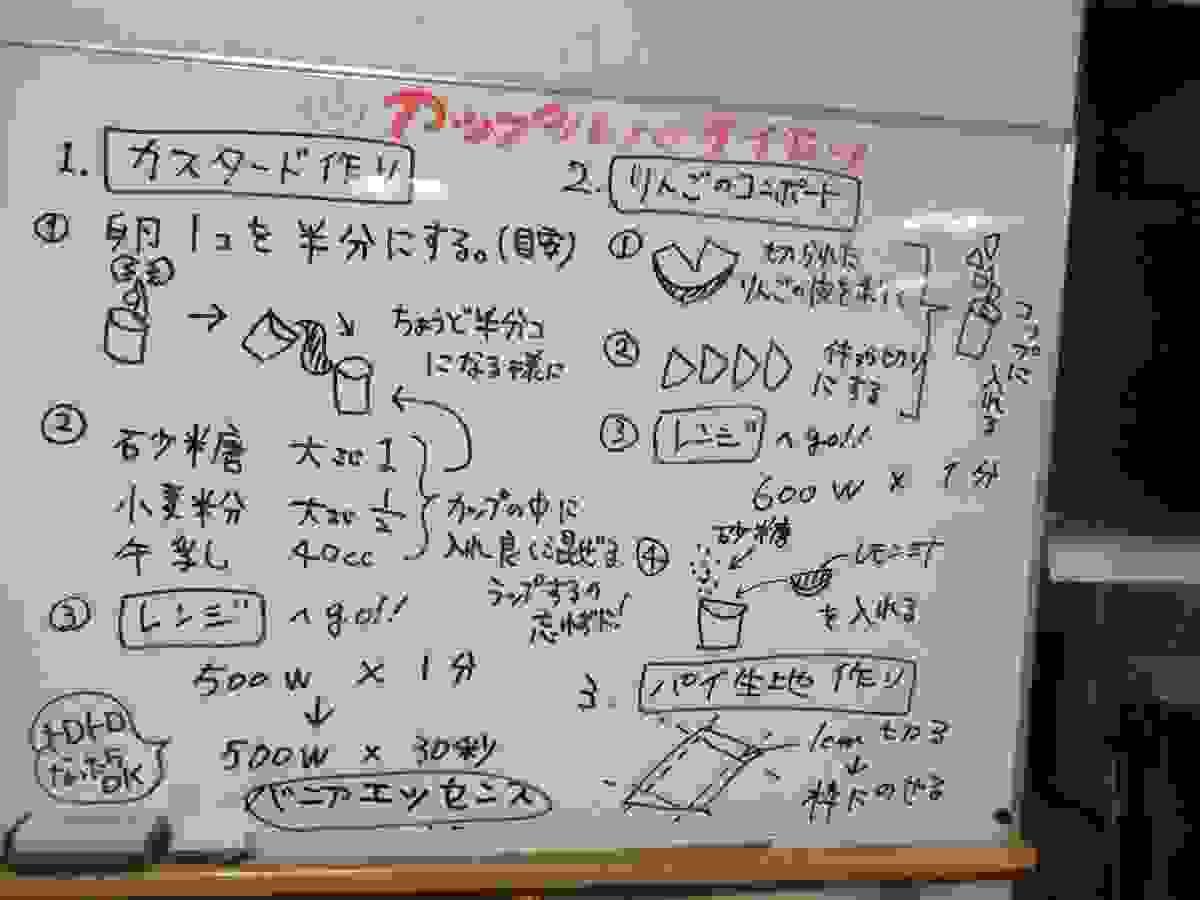 1. カスタード作り
① 卵1コを半分にする。(目安)
→ ちょうど半分コ
になる様に
② 砂糖 大さじ1
小麦粉 大さじ1/2
牛乳 40cc
カップの中に
入れ良く混ぜる
ラップするの
忘れずに!
③ レンジ へgo!!
500W × 1分
↓
500W × 30秒
トロトロ
なったら
OK
バニアエッセンス
2. りんごのコンポート
① 切られた
りんごの皮を
② 切り
にする
コップに
入れる
③ レンジ へgo!!
600W × 1分
④ 砂糖
レモン汁
を入れる
3. パイ生地作り
1cm 切る
↓
枠にのせる